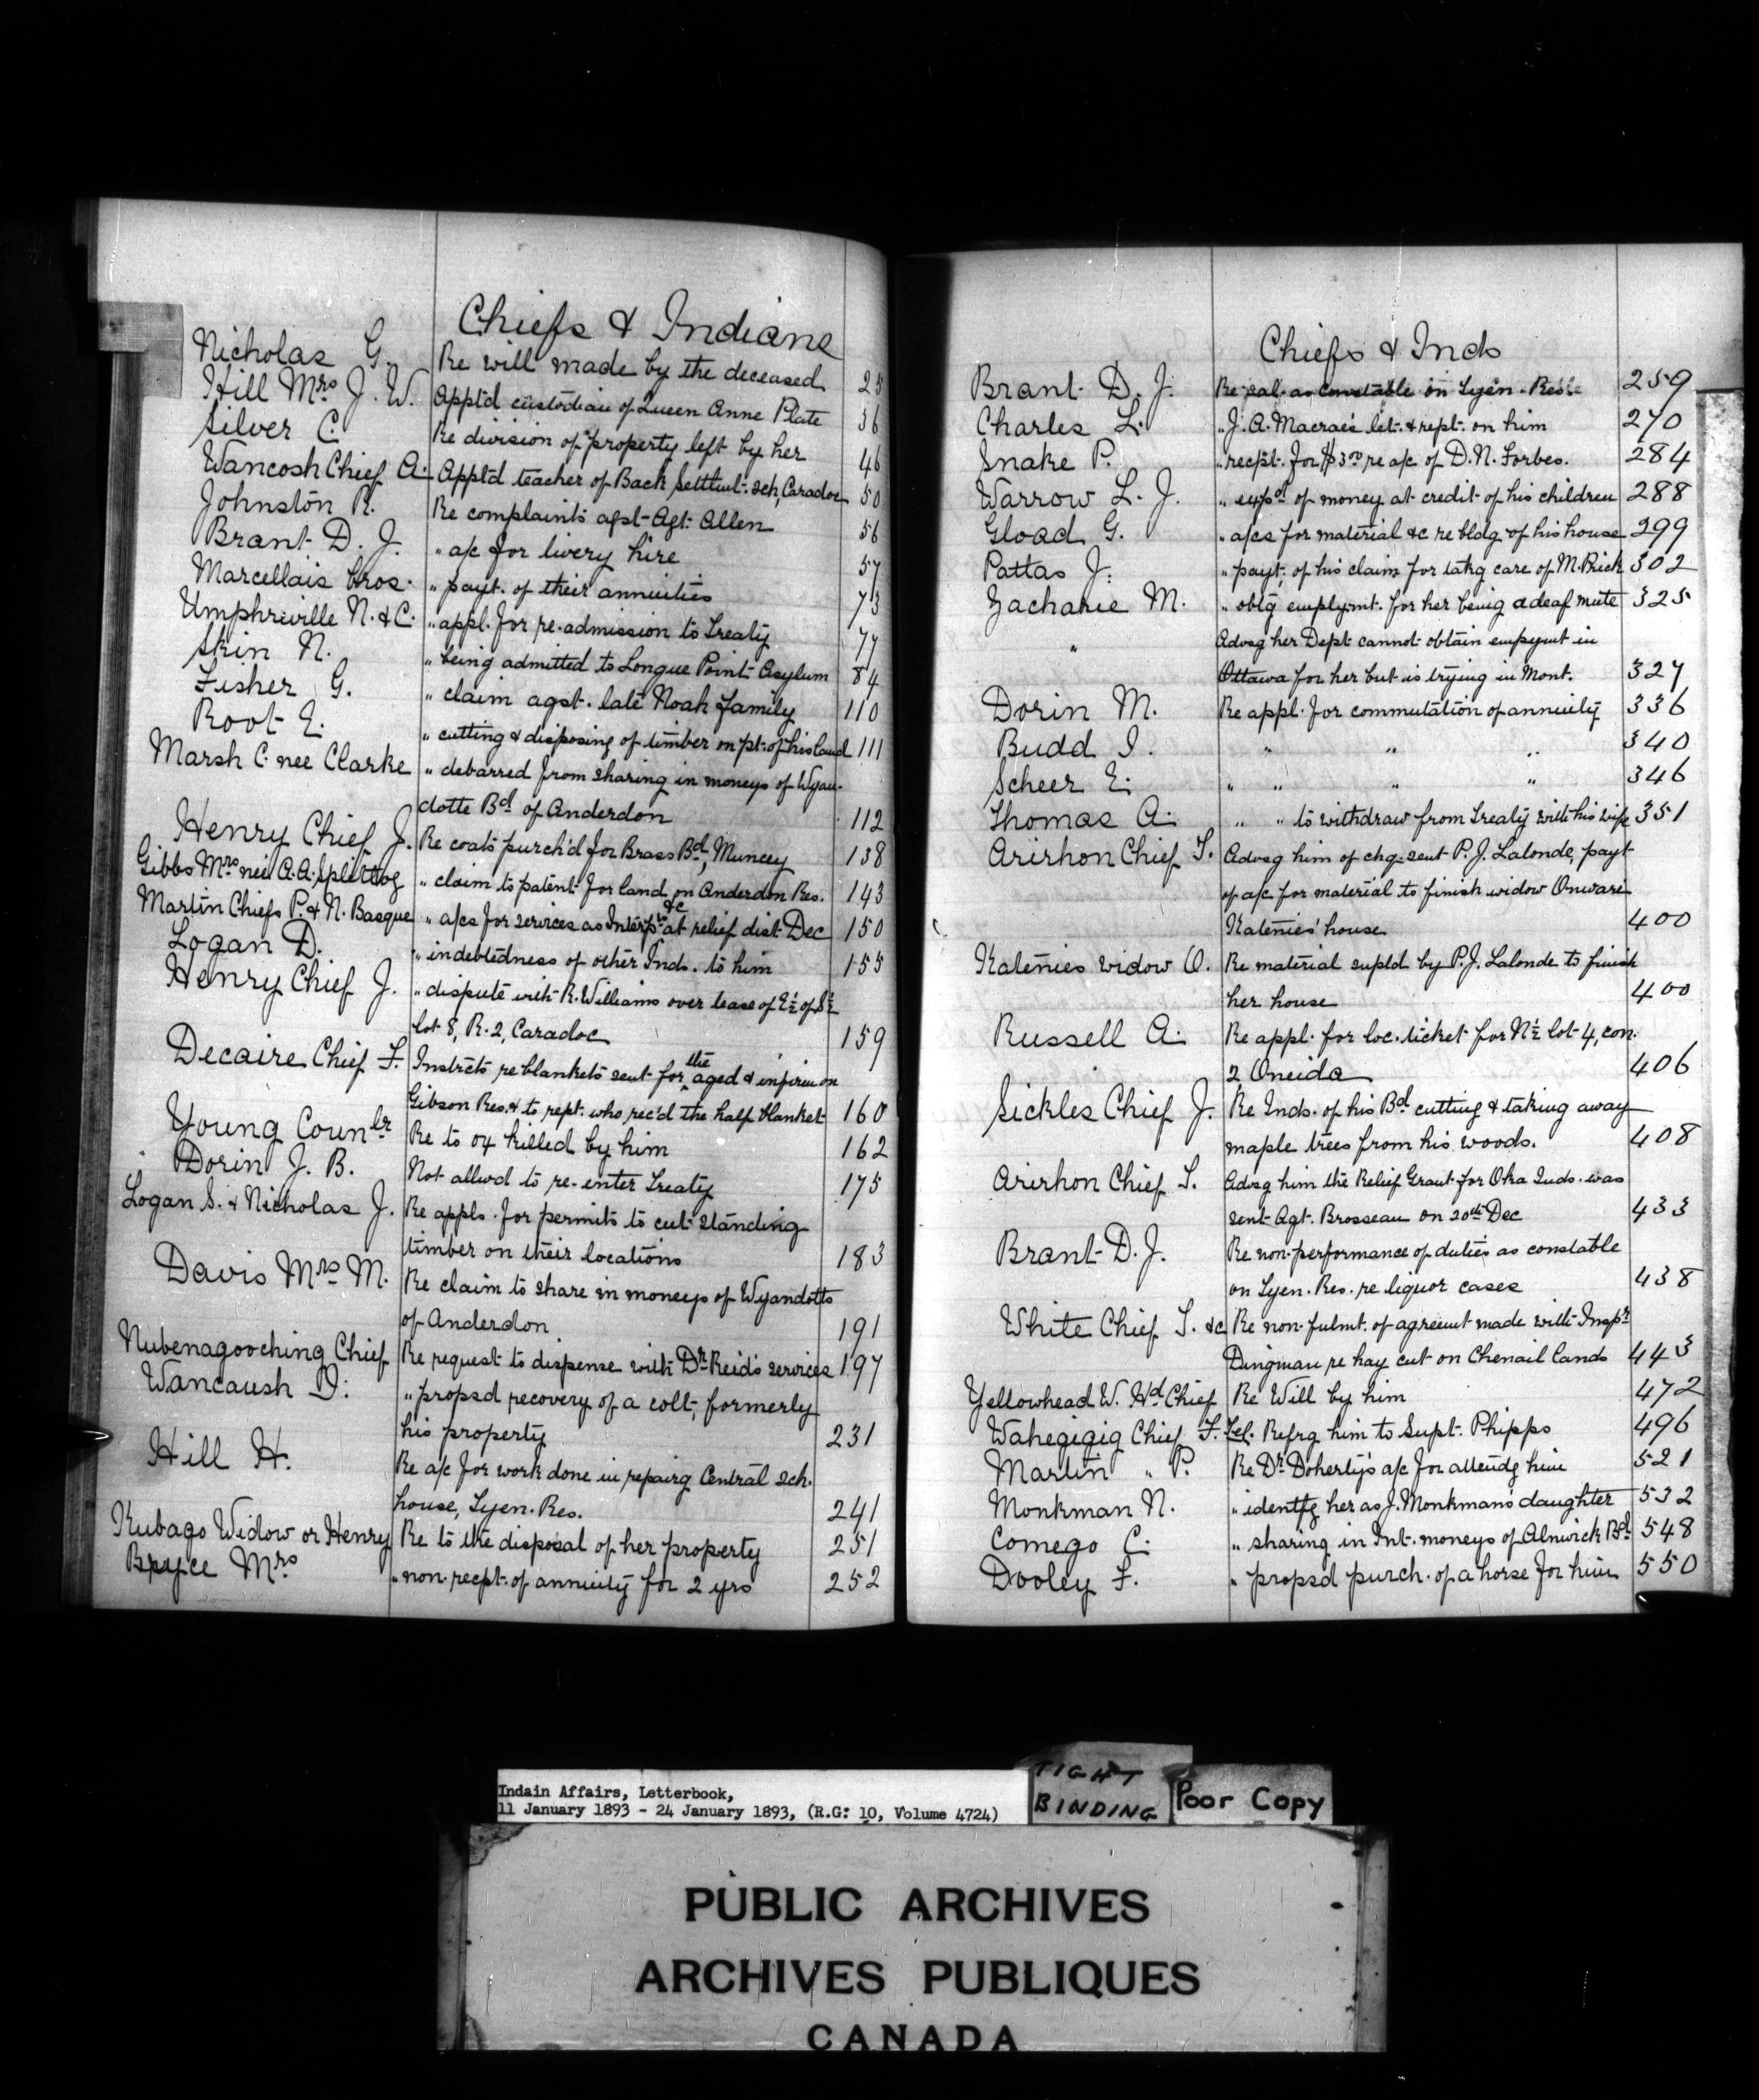 Chiefs & Indians
Nicholas G. Re will made by the deceased 25
Hill Mrs J. W. Appt'd custodian of Queen Anne Plate 36
Silver C. Re division of property left by her 46
Wancosh Chief A. Appt'd teacher of Back Settlmt. sch, Caradoc 50
Johnston R. Re complaints agst Agt. Allen 56
Brant D. J. " a/c for livery hire 57
Marcellais bros. " payt. of their annuities 73
Umphreville N. & C. " appl. for re-admission to Treaty 77
Skin N. " being admitted to Longue Point Asylum 84
Fisher G. " claim agst. late Noah family 110
Root E. " cutting & disposing of timber on pt. of his land 111
Marsh C. nee Clarke " debarred from sharing in moneys of Wyan-
dotte Bd of Anderdon 112
Henry Chief J. Re coats purch'd for Brass Bd, Muncey 138
Gibbs Mrs neé A. A. Splitlog " claim to patent for land on Anderdon Res. 143
Martin Chiefs P. & N. Basque " a/cs for services as Interpr &c at relief dist. Dec 150
Logan D. " indebtedness of other Inds. to him 155
Henry Chief J. " dispute with R. Williams over lease of E½ of S½
lot 8, R. 2, Caradoc 159
Decaire Chief F. Instrcts re blankets sent for the aged & infirm on
Gibson Res. & to rept. who rec'd the half blanket 160
Young Counlr Re to ox killed by him 162
Dorin J. B. Not allwd to re-enter Treaty 175
Logan S. & Nicholas J. Re appls. for permits to cut standing
timber on their locations 183
Davis Mrs M. Re claim to share in moneys of Wyandotts
of Anderdon 191
Nubenagooching Chief Re request to dispense with Dr Reid's services 197
Wancaush D. " propsd recovery of a colt, formerly
his property 231
Hill H. Re a/c for work done in repairg Central sch.
house, Tyen. Res. 241
Kubago Widow or Henry Re to the disposal of her property 251
Bryce Mrs " non-recpt. of annuity for 2 yrs 252
Chiefs & Inds
Brant D. J. Re sal. as constable on Tyen. Res. 259
Charles L. " J. A. Macrae's let. & rept. on him 270
Snake P. " recpt. for $3.00 re a/c of D. N. Forbes. 284
Warrow L. J. " exp'd of money at credit of his children 288
Gload G. " a/cs for material &c re bldg of his house 299
Pattas J. " payt. of his claim for takg care of M. Prick 302
Zacharie M. " obtg emplymt. for her being a deaf mute 325
" Advsg her Dept cannot obtain empymt in
Ottawa for her but is trying in Mont. 327
Dorin M. Re appl. for commutation of annuity 336
Budd I. " " " 340
Scheer E. " " " " 346
Thomas A. " " to withdraw from Treaty with his wife 351
Arirhon Chief T. Advsg him of chq. sent P. J. Lalonde, payt
of a/c for material to finish widow Onwari
Katenies' house 400
Katenies widow O. Re material supld by P. J. Lalonde to finish
her house 400
Russell A. Re appl. for loc. ticket for N½ lot 4, con.
2 Oneida 406
Sickles Chief J. Re Inds. of his Bd cutting & taking away
maple trees from his woods. 408
Arirhon Chief T. Advsg him the Relief Grant for Oka Inds. was
sent Agt. Brosseau on 20th Dec 433
Brant D. J. Re non-performance of duties as constable
on Tyen. Res. re liquor cases 438
White Chief T. &c Re non-fulmt. of agreemt made with Inspr
Dingman re hay cut on Chenail lands 443
Yellowhead W. Hd Chief Re Will by him 472
Wahegigig Chief F. Tel. Refrg him to Supt. Phipps 496
Martin " P. Re Dr Doherty's a/c for attendg him 521
Monkman N. " identfg her as J. Monkman's daughter 532
Comego C. " sharing in Int. moneys of Alnwick Bd 548
Dooley F. " propsd purch. of a horse for him 550
Indain Affairs, Letterbook,
11 January 1893 - 24 January 1893, (R.G: 10, Volume 4724)
TIGHT
BINDING
Poor Copy
PUBLIC ARCHIVES
ARCHIVES PUBLIQUES
CANADA